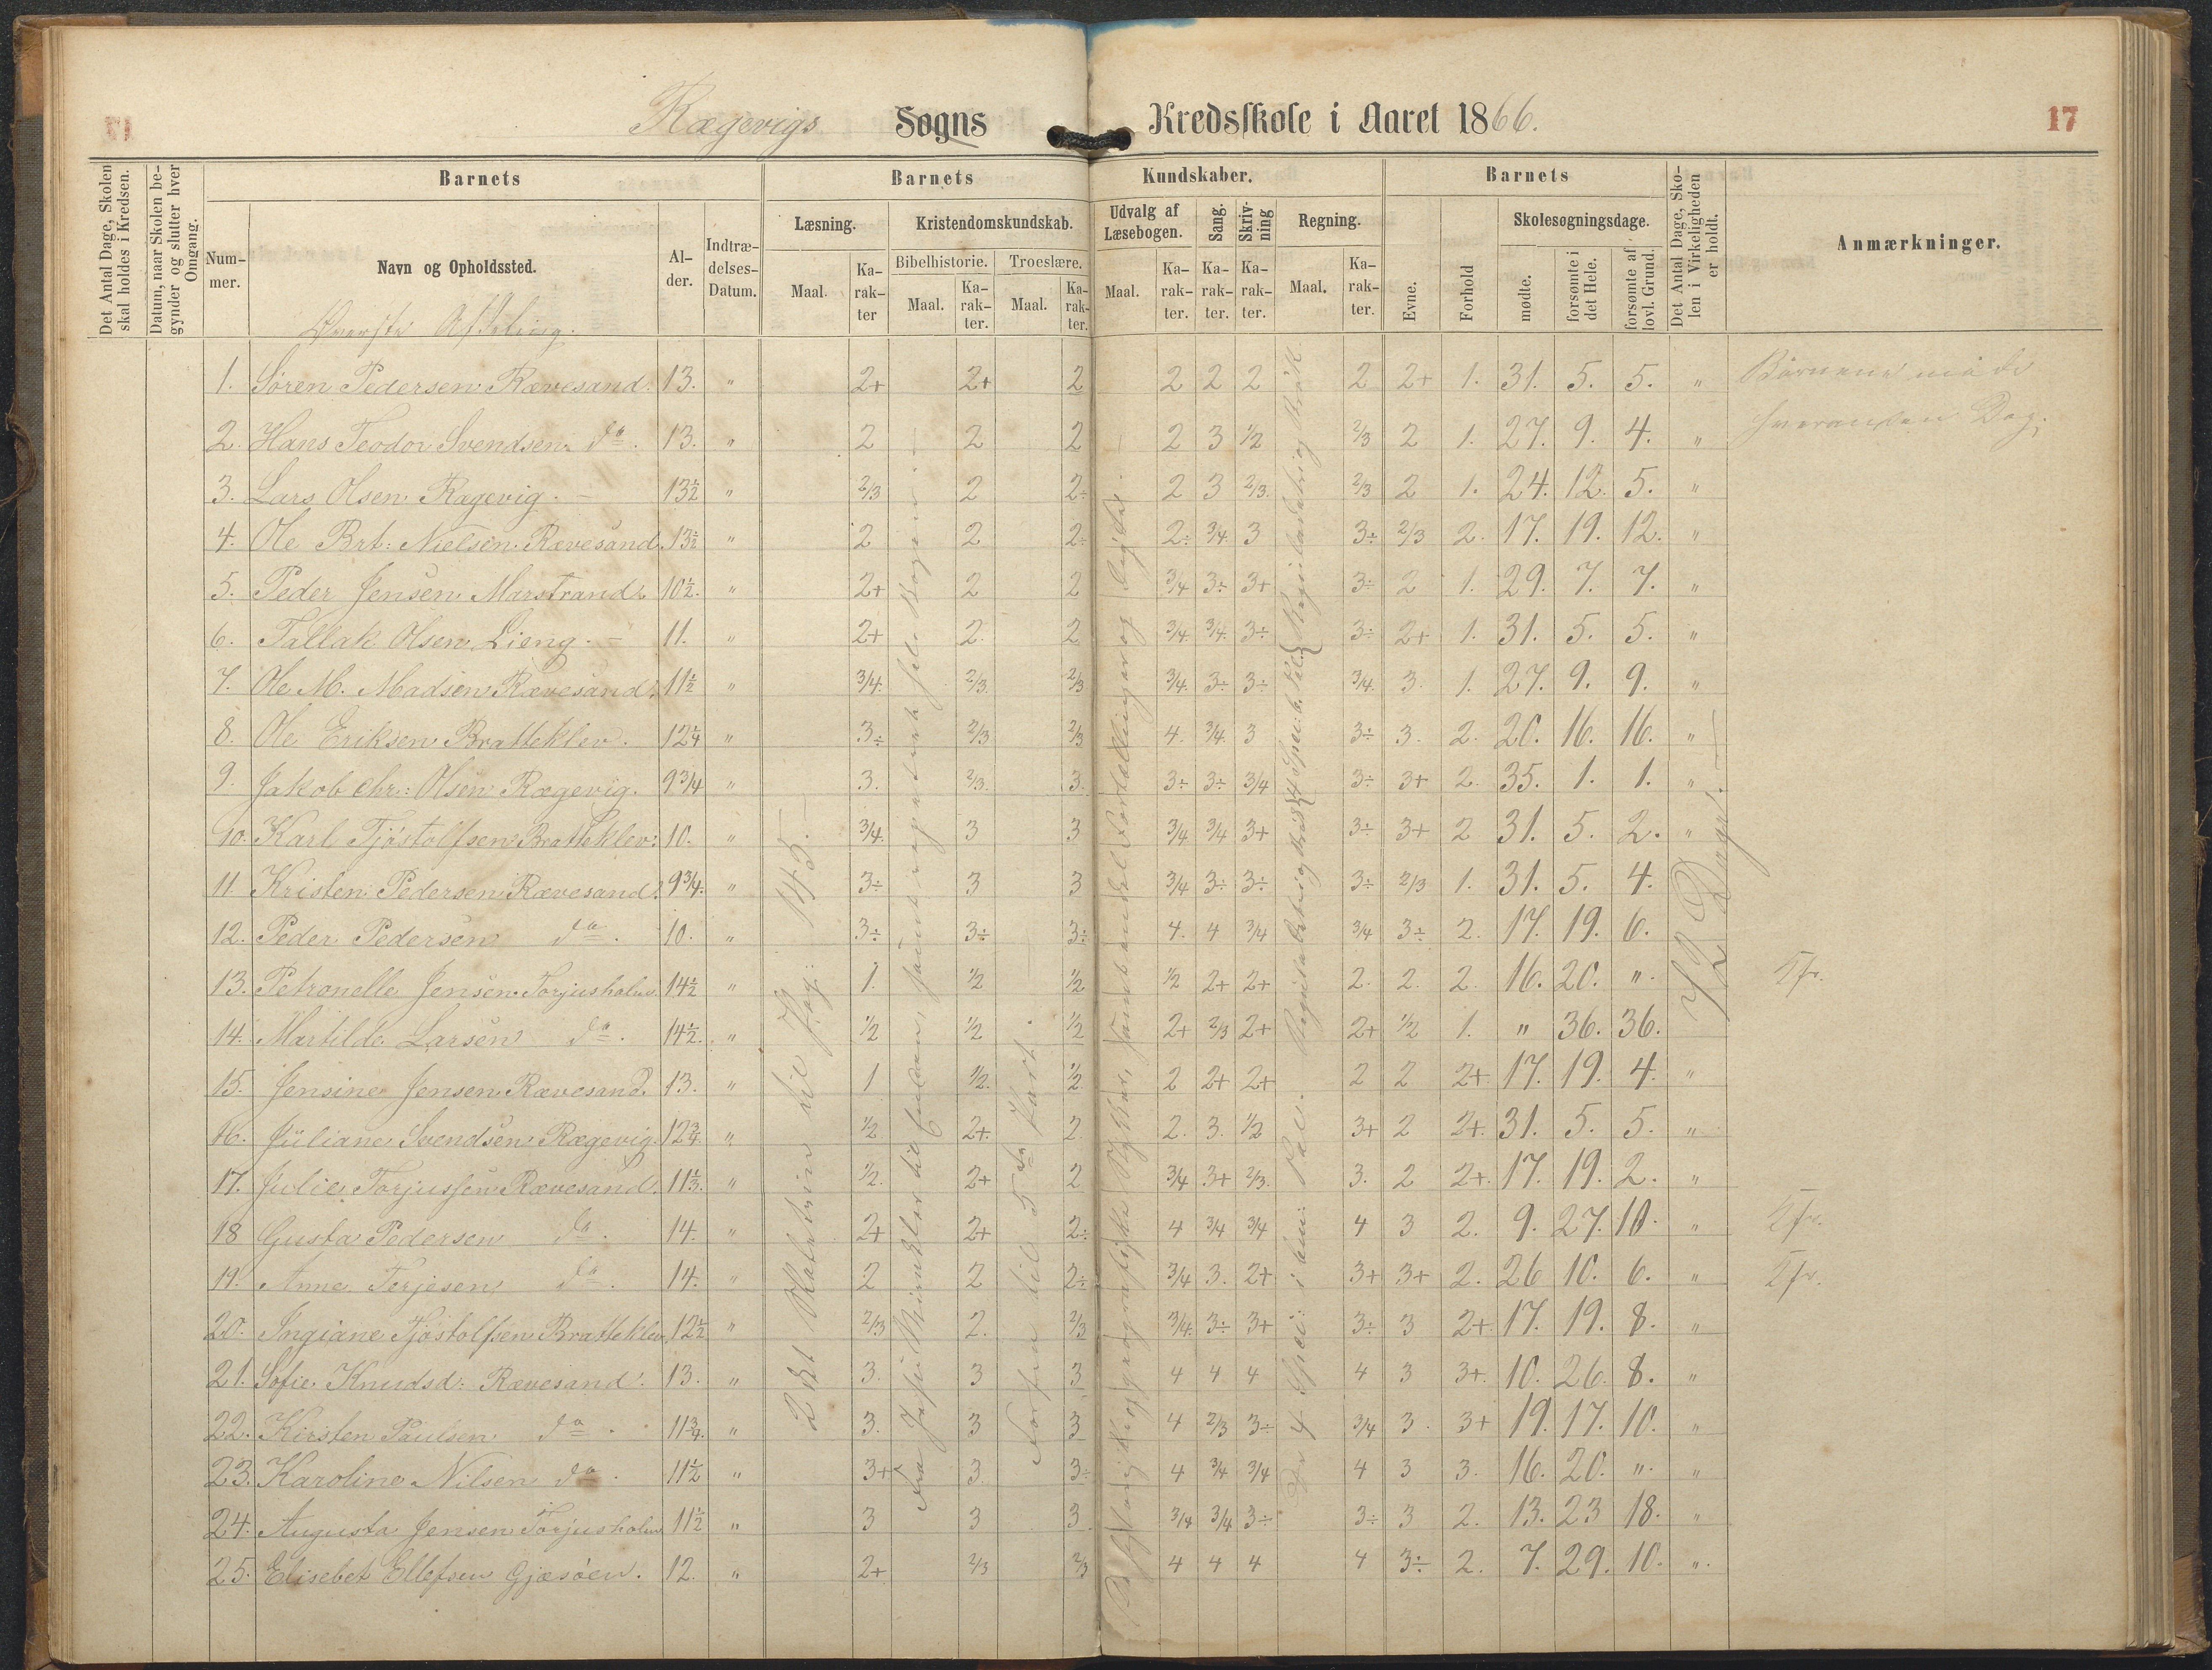 Rægevigs Sogns Kredsskole i Aaret 1866. 17
Det Antal Dage, Skolen skal holdes i Kredsen.
Datum, naar Skolen begynder og slutter hver Omgang.
Barnets
Barnets Kundskaber.
Barnets
Det Antal Dage, Skolen i Virkeligheden er holdt.
Anmærkninger.
Nummer.
Navn og Opholdssted.
Alder.
Indtrædelses-Datum.
Læsning.
Kristendomskundskab.
Udvalg af Læsebogen.
Sang.
Skrivning
Regning.
Evne.
Forhold
Skolesøgningsdage.
Bibelhistorie.
Troeslære.
Maal.
Karakter
Maal.
Karakter.
Maal.
Karakter.
Maal.
Karakter.
Karakter.
Karakter.
Maal.
Karakter.
mødte.
forsømte i det Hele.
forsømte af lovl. Grund.
Øverste Afdeling.
1. Søren Pedersen Rævesand. 13. " 2+ 2+ 2 2 2 2 2 2+ 1. 31. 5. 5. "
2. Hans Teodor Svendsen do. 13. " 2 2 2 2 3 1/2 2/3 2 1. 27. 9. 4. " hveranden Dag.
3. Lars Olsen Rægevig. 13½ " 2/3 2 2÷ 2 3 2/3. 2/3 2 1. 24. 12. 5. "
4. Ole Brt: Nielsen Rævesand. 13½ " 2 2 2÷ 2÷ 3/4. 3 3÷ 2/3 2. 17. 19. 12. "
5. Peder Jensen Marstrand. 10½. " 2+ 2 2 3/4 3÷ 3+ 3÷ 2 1. 29. 7. 7. "
6. Tallak Olsen Lieng. 11. " 2+ 2. 2 3/4 3/4. 3÷ 3÷ 2+ 1. 31. 5. 5. "
7. Ole M. Madsen Rævesand. 11½ " 3/4. 2/3. 2/3 3/4. 3÷ 3÷ 3/4. 3. 1. 27. 9. 9. "
8. Ole Eriksen Bratteklev. 12¼ " 3÷ 2/3 2/3 4. 3/4. 3 3÷ 3. 2. 20. 16. 16. "
9. Jakob Chr: Olsen Rægevig. 9 3/4 " 3. 2/3. 3. 3÷ 3÷ 3/4 3÷ 3+ 2. 35. 1. 1. "
10. Karl Tjöstolfsen Bratteklev: 10. " 3/4. 3 3 3/4 3/4 3+ 3÷ 3+ 2 31. 5. 2. "
11. Kristen Pedersen Rævesand. 9 3/4. " 3÷ 3 3 3/4 3÷ 3÷ 3÷ 2/3 1. 31. 5. 4.
12. Peder Pedersen do. 10. " 3÷ 3÷ 3÷ 4. 4 3/4 3/4 3÷ 2. 17. 19. 6.
13. Petronelle Jensen Torjusholm. 14½ " 1. 1/2 1/2 1/2 2+ 2+ 2. 2. 2. 16. 20. "
14. Martilde Larsen do. 14½. " 1/2 1/2 1/2 2+ 2/3 2+ 2+ 1/2 1. " 36. 36.
15. Jensine Jensen Rævesand. 13. " 1 1/2. 1/2 2 2+ 2+ 2 2 2+ 17. 19. 4. "
16. Juliane Svendsen Rægevig. 12 3/4. " 1/2 2+. 2 2. 3. 1/2 3+ 2 2+. 31. 5. 5. "
17. Julie Torjussen Rævesand. 11⅓. " 1/2. 2+ 2 3/4 3+ 2/3. 3. 2 2+. 17. 19. 2. "
18 Gusta Pedersen do. 14. " 2+ 2+ 2÷ 4 3/4 3/4 4 3 2. 9. 27. 10. "
19. Anne Terjesen do. 14. " 2 2 2÷ 3/4 3. 2+ 3+ 3+ 2. 26 10. 6. "
20. Ingiane Tjöstolfsen Bratteklev. 12½ " 2/3 2. 2/3 3/4. 3÷ 3+ 3÷ 3 2+. 17. 19. 8. "
21. Sofie Knudsd: Rævesand. 13. " 3. 3 3 4 4 4 4 3 3+. 10. 26. 8. "
22. Kirsten Paulsen do. 11 3/4. " 3. 3 3 4 2/3 3÷ 3/4 3. 3+ 19. 17. 10. "
23. Karoline Nilsen do. 11½ " 3+ 3. 3÷ 4 3/4 3/4 4 3 3. 16. 20. " "
24. Augusta Jensen Torjusholm 11½ " 3 3 3. 3/4 3/4 3÷ 3÷ 3 2. 13. 23 18. "
25. Elisebet Ellefsen Gjæsöen. 12. " 2+ 2/3 2/3 4 4 4 4 3÷ 2. 7. 29. 10. "
72 Dage.